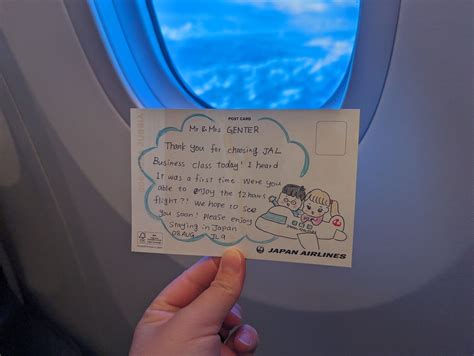 POST CARD
Mr & Mrs GENTER
Thank you for choosing JAL
Business class today! I heard
It was a first time. Were you
able to enjoy the 12 hours
flight?? We hope to see
you soon! Please enjoy
Staying in Japan
08 AUG JL9
JAPAN AIRLINES